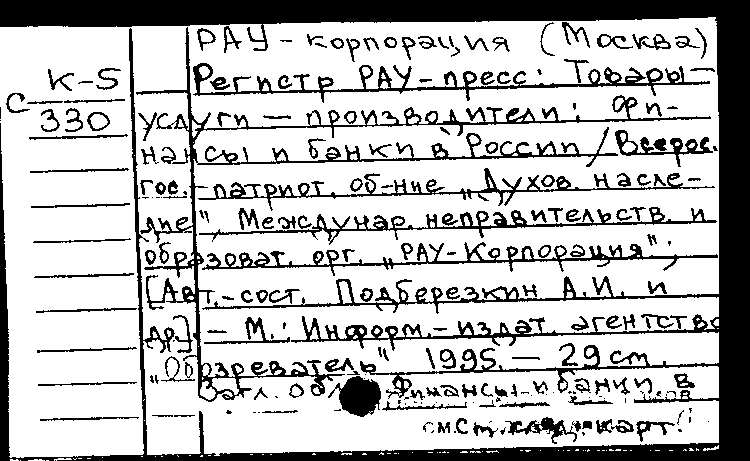 РАУ - корпорация (Москва)
К-5 Регистр РАУ-пресс: Товары-
С
330 услуги — производители: фи-
нансы и банки в России / Всерос.
гос.-патриот. об-ние „Духов. насле-
дие", Междунар. неправительств. и
образоват. орг. „РАУ-Корпорация";
[Авт.-сост. Подберезкин А.И. и
др.]. — М.: Информ.-издат. агентство
„Обозреватель" 1995. — 29 см.
Загл. обл. Финансы и банки в
см. след. карт.